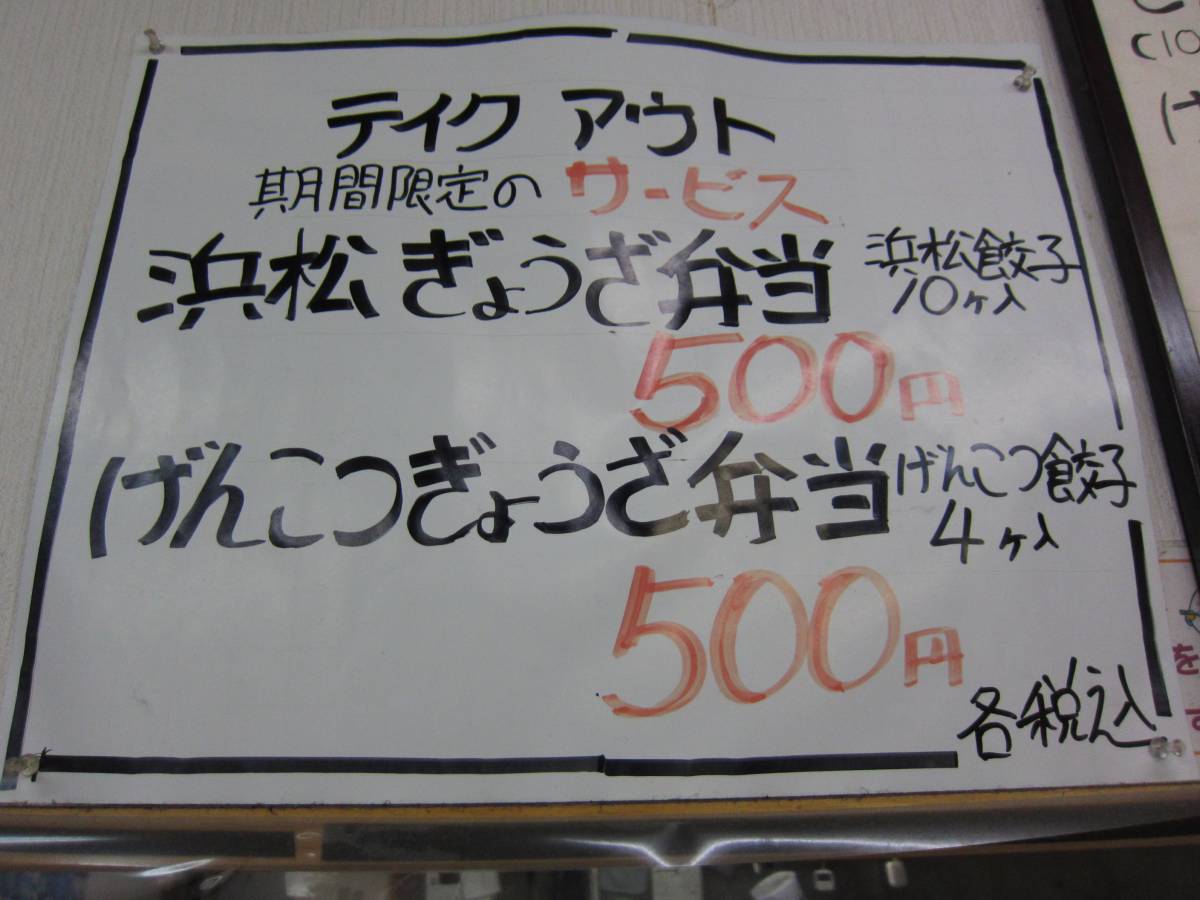 テイク アウト
期間限定の サービス
浜松ぎょうざ弁当 浜松餃子
10ヶ入
500円
げんこつぎょうざ弁当 げんこつ餃子
4ヶ入
500円
各税込
(10
げ
を